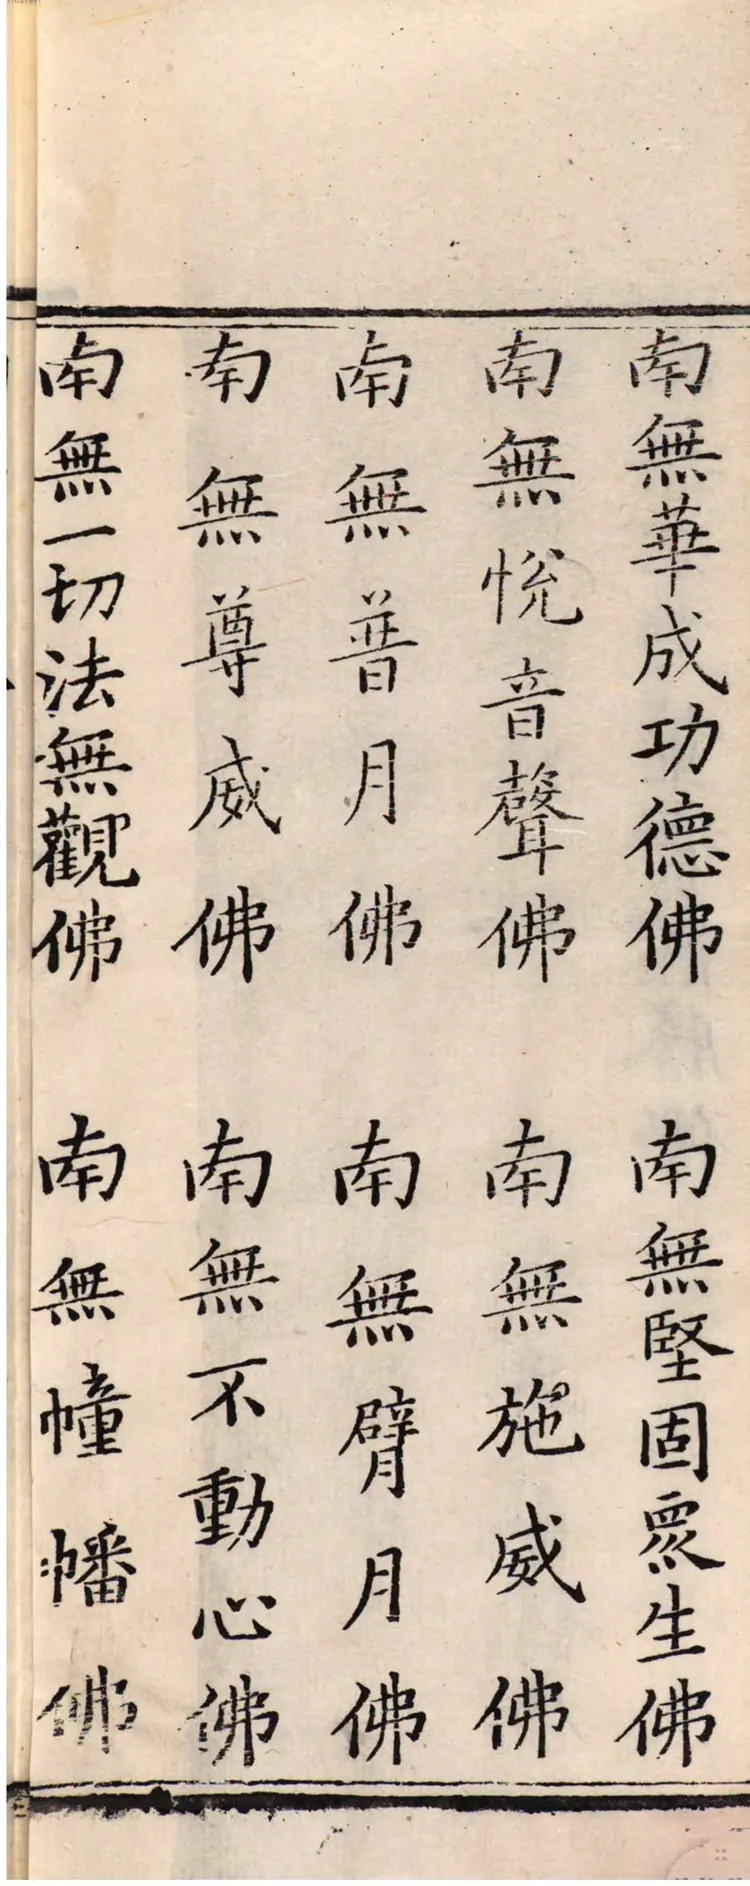 南無華成功德佛　南無堅固眾生佛
南無悅音聲佛　南無施威佛
南無普月佛　南無臂月佛
南無尊威佛　南無不動心佛
南無一切法無觀佛　南無幢幡佛